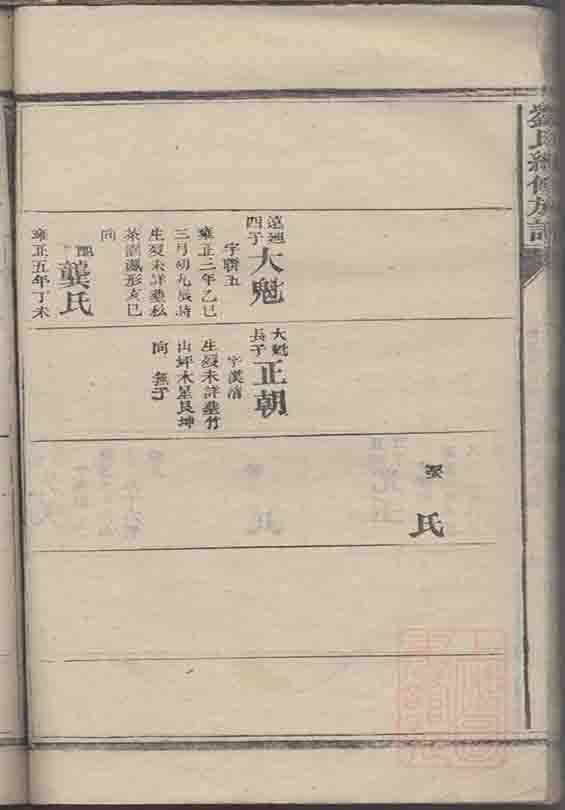 劉氏續修族譜
四子
大魁
字聯五
雍正三年乙巳
三月初九辰時
生歿未詳葬松
茶園鳳形亥巳
向
配
龔氏
雍正五年丁未
大魁
長子
正朝
字漢清
生歿未詳葬竹
山坪木星艮坤
向 無子
娶
氏